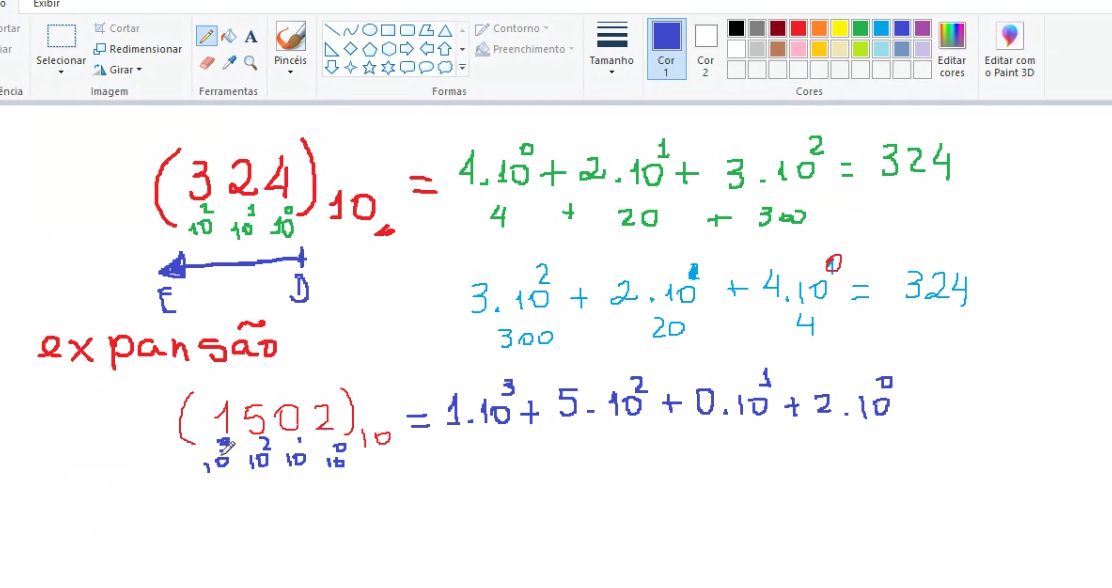 Exibir
Cortar
Redimensionar
Girar
Selecionar
Imagem
A
Ferramentas
Pincéis
Formas
Contorno
Preenchimento
Tamanho
Cor 1
Cor 2
Editar cores
Editar com o Paint 3D
Cores
(324)10 = 4.10⁰ + 2.10¹ + 3.10² = 324
10² 10¹ 10⁰
4 + 20 + 300
E D
3.10² + 2.10¹ + 4.10⁰ = 324
300 20 4
expansão
(1502)10 = 1.10³ + 5.10² + 0.10¹ + 2.10⁰
10³ 10² 10¹ 10⁰